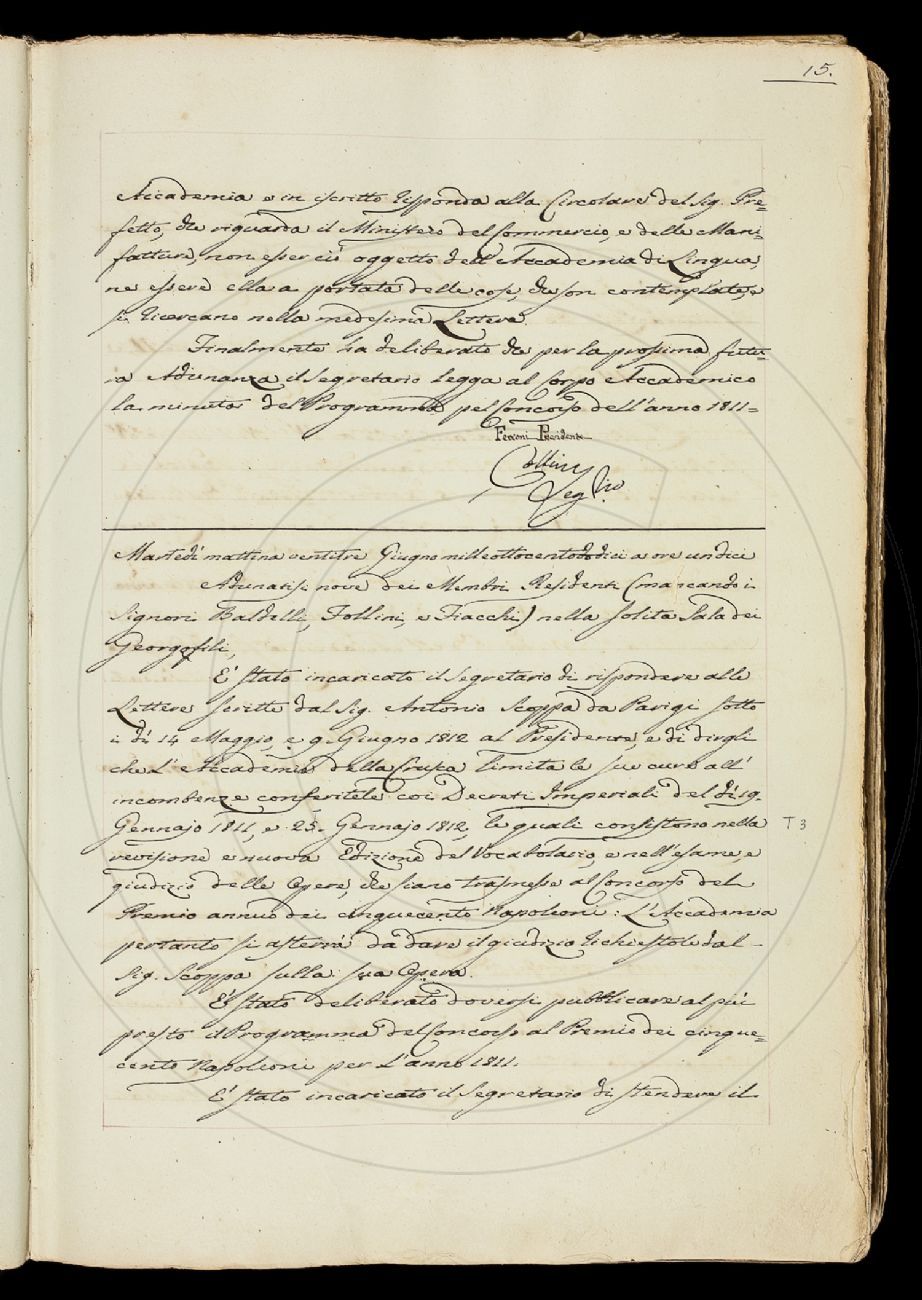 15.
Accademia e in iscritto risponda alla Circolare del Sig. Pre=
fetto, che riguarda il Ministero del Commercio, e delle Mani=
fatture, non esser ciò oggetto dell'Accademia di Lingua,
ne essere ella a portata delle cose, che son contemplate, e
si ricercano nella medesima Lettera.
Finalmente ha deliberato che per la prossima futu=
ra Adunanza il Segretario legga al Corpo Accademico
la minuta del Programma pel Concorso dell'anno 1811=
Ferroni Presidente
Collini
Seg.rio
Martedì mattina ventitre Giugno milleottocentododici a ore undici
Adunatisi nove dei Membri Residenti (mancando i
Signori Baldelli, Follini, e Fiacchi) nella solita Sala dei
Georgofili,
E' stato incaricato il Segretario di rispondere alle
Lettere scritte dal Sig. Antonio Scoppa da Parigi sotto
i dì 14 Maggio, e 9. Giugno 1812 al Presidente, e di dirgli
che L'Accademia della Crusca limita le sue cure all'
incombenze conferitele coi Decreti Imperiali del dì 19.
Gennajo 1811, e 23. Gennajo 1812, le quali consistono nella
T3
revisione e nuova Edizione del Vocabolario, e nell'esame, e
giudizio delle Opere, che siano trasmesse al Concorso del
Premio annuo dei cinquecento Napoleoni: L'Accademia
pertanto si asterrà da dare il giudizio richiestole dal
Sig. Scoppa sulla sua Opera.
E' stato deliberato doversi pubblicare al più
presto il Programma del Concorso al Premio dei cinque=
cento Napoleoni per L'anno 1811.
E' stato incaricato il Segretario di stendere il